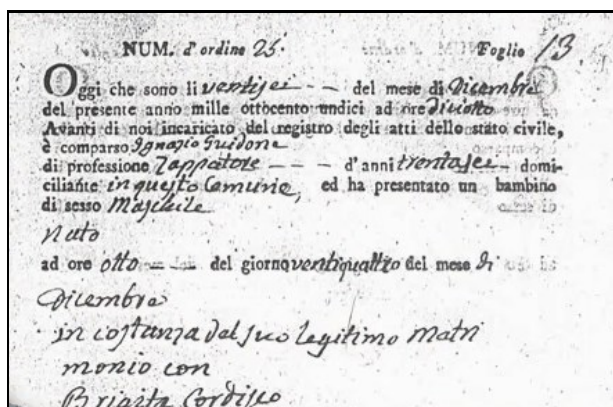 NUM. d'ordine 25. Foglio 13
Oggi che sono li ventisei - - del mese di Dicembre
del presente anno mille ottocento undici ad ore diciotto
Avanti di noi incaricato del registro degli atti dello stato civile,
è comparso Ignazio Guidone
di professione Zappatore - - - d'anni trentasei - domi-
ciliante in questo Comune, ed ha presentato un bambino
di sesso Maschile
Nato
ad ore otto - - - del giorno ventiquattro del mese di
Dicembre
in costanza del suo legitimo Matri
monio con
Brigita Cordisco